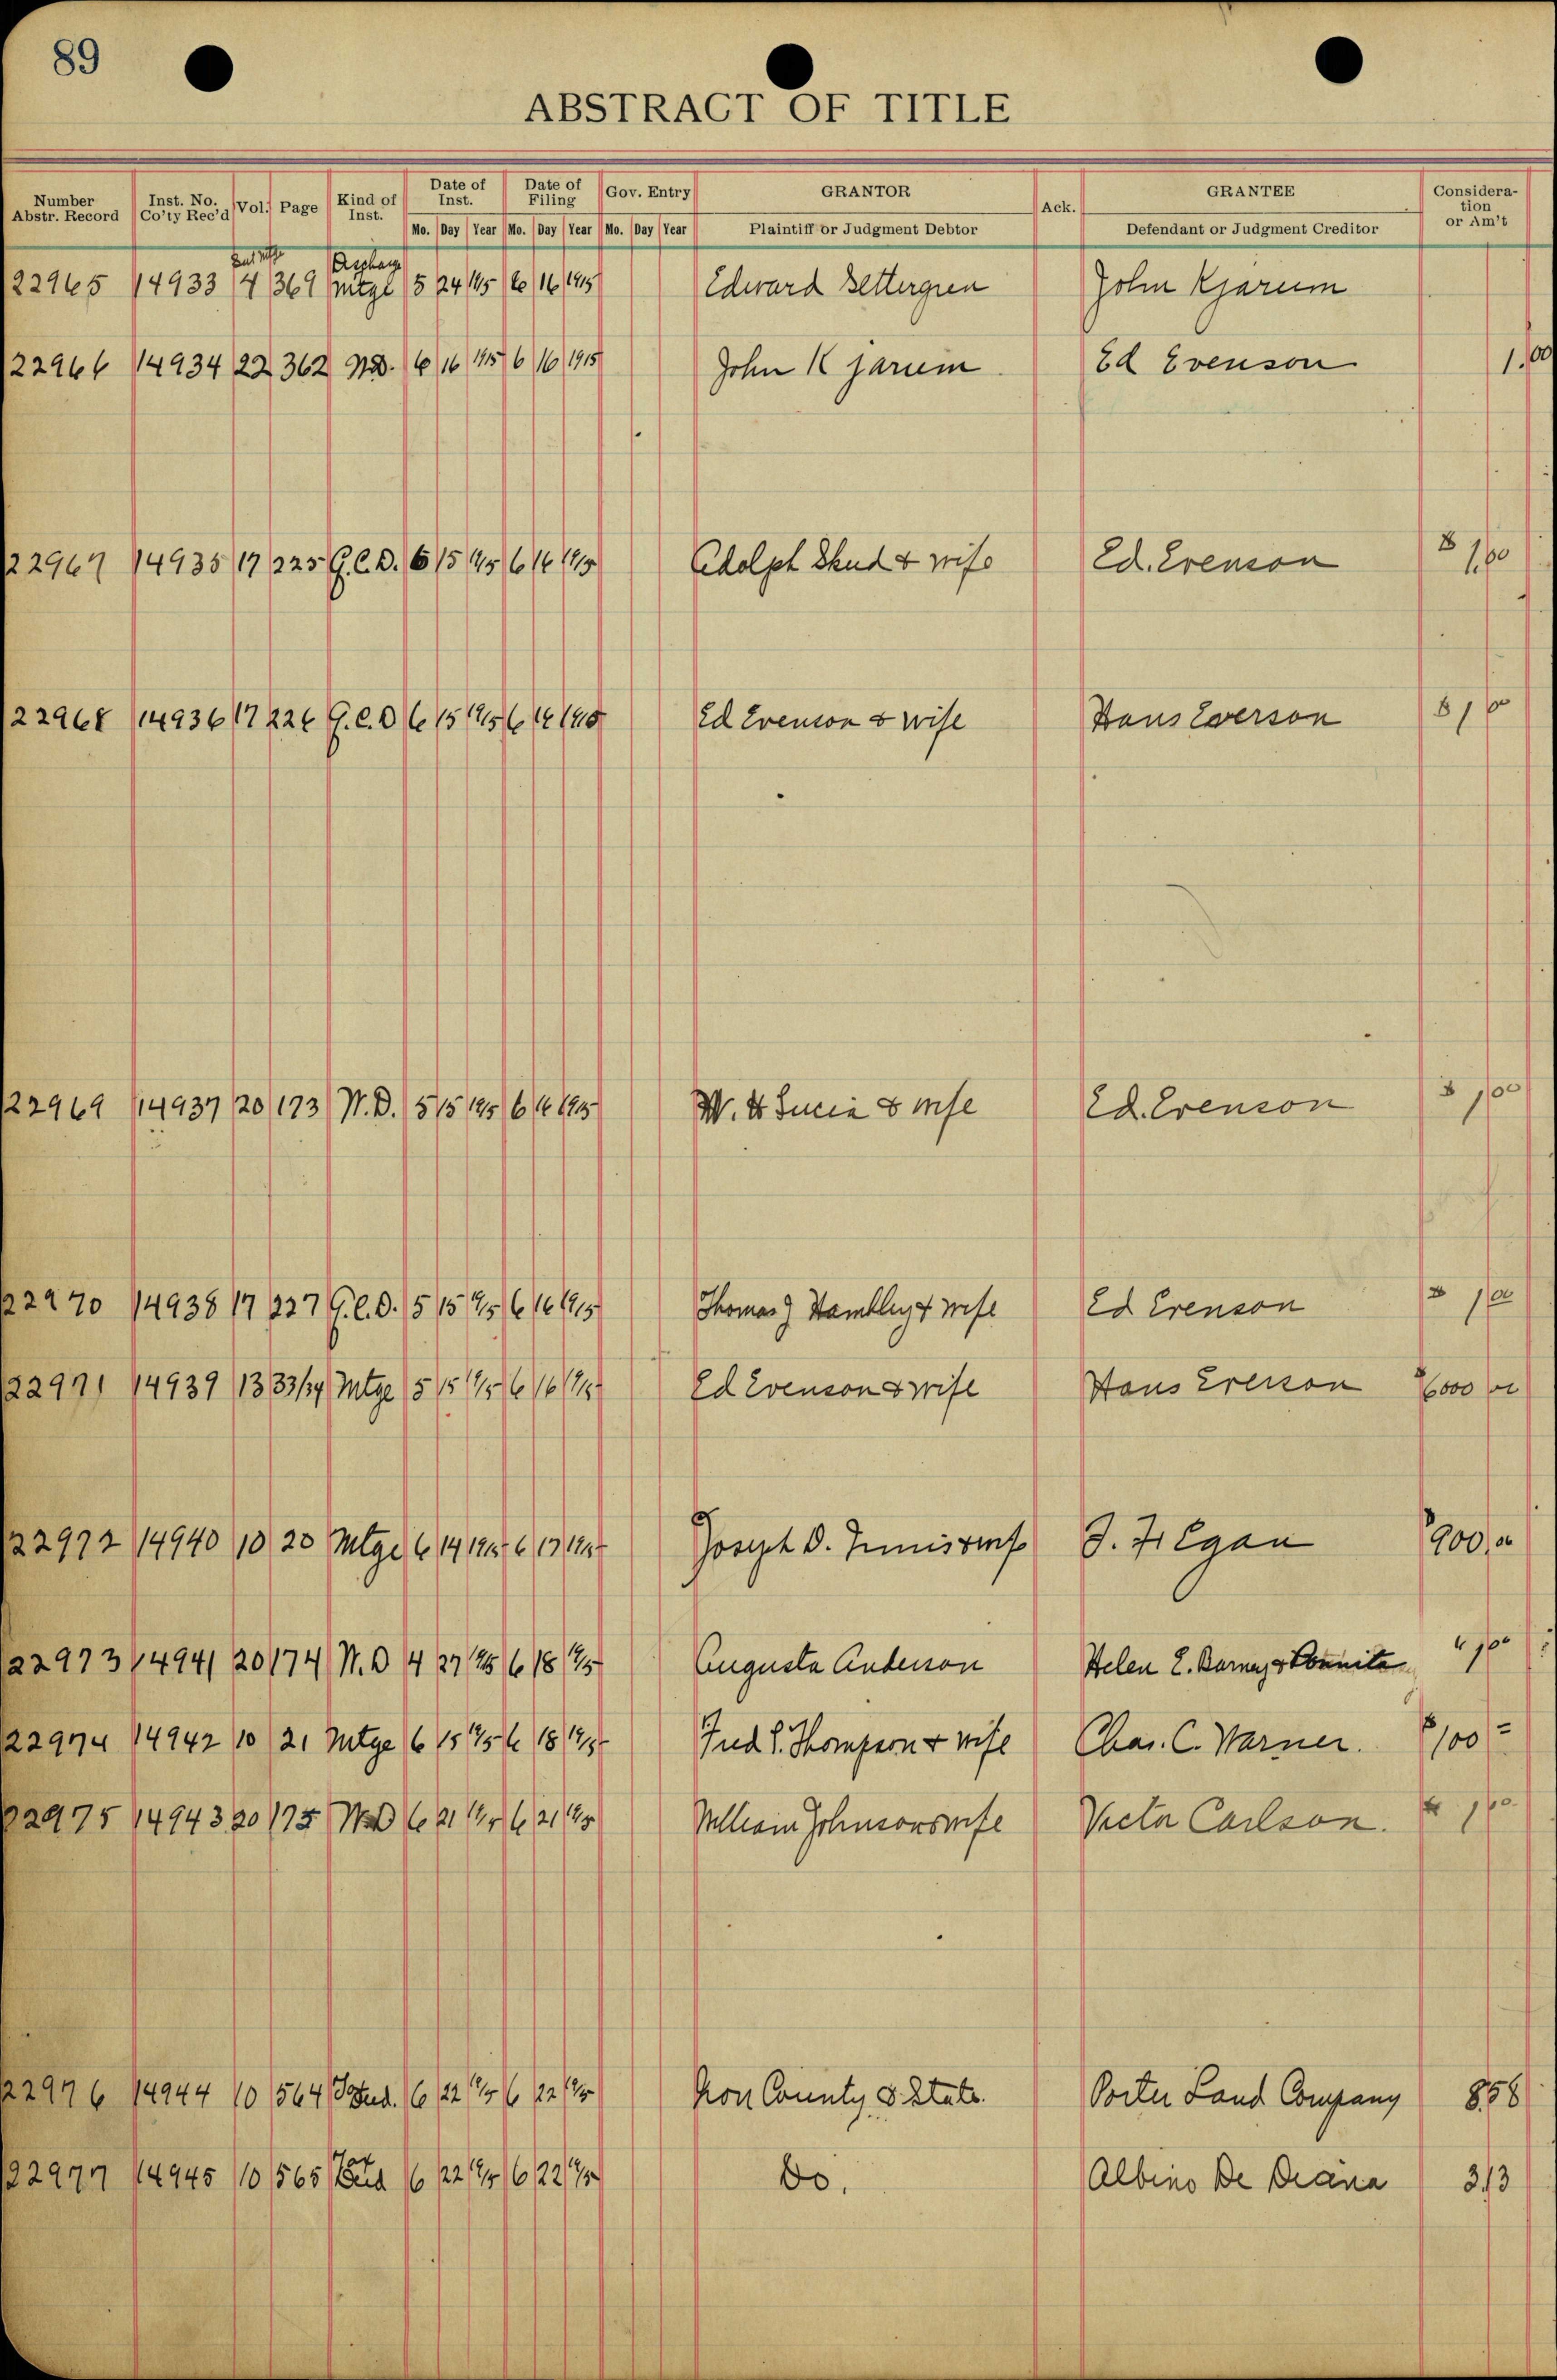 89
ABSTRACT OF TITLE
Number Abstr. Record Inst. No. Co'ty Rec'd Vol. Page Kind of Inst. Date of Inst. Date of Filing Gov. Entry GRANTOR Ack. GRANTEE Consideration or Am't
Mo. Day Year Mo. Day Year Mo. Day Year Plaintiff or Judgment Debtor Defendant or Judgment Creditor
22965 14933 4 369 Mtge 5 24 1915 6 16 1915 Edward Bettergren John Kjarum
22966 14934 22 362 W.D. 6 16 1915 6 16 1915 John Kjarum Ed Evenson 1.00
22967 14935 17 225 Q.C.D. 6 15 1915 6 16 1915 Adolph Skud & wife Ed. Evenson $ 1.00
22968 14936 17 226 Q.C.D 6 15 1915 6 16 1915 Ed Evenson & wife Hans Everson $ 1 00
22969 14937 20 173 W.D. 5 15 1915 6 16 1915 W. H Lucia & wife Ed. Evenson $ 1 00
22970 14938 17 227 Q.C.D. 5 15 1915 6 16 1915 Thomas J Hambley & wife Ed Evenson $ 1 00
22971 14939 13 33/34 Mtge 5 15 1915 6 16 1915 Ed Evenson & wife Hans Everson $6000 00
22972 14940 10 20 Mtge 6 14 1915 6 17 1915 Joseph D. & wife J. F. Egan $900.00
22973 14941 20 174 W.D 4 27 1915 6 18 1915 Augusta Anderson Helen E. Barney & 1 00
22974 14942 10 21 Mtge 6 15 1915 6 18 1915 Fred S. Thompson & wife Chas. C. Warner. $100 =
22975 14943 20 175 WD 6 21 1915 6 21 1915 William Johnson & wife Victor Carlson. $ 1 00
22976 14944 10 564 6 22 1915 6 22 1915 Iron County & State. Porter Land Company 8 58
22977 14945 10 565 Tax 6 22 1915 6 22 1915 Do. Albino De Diana 3 13